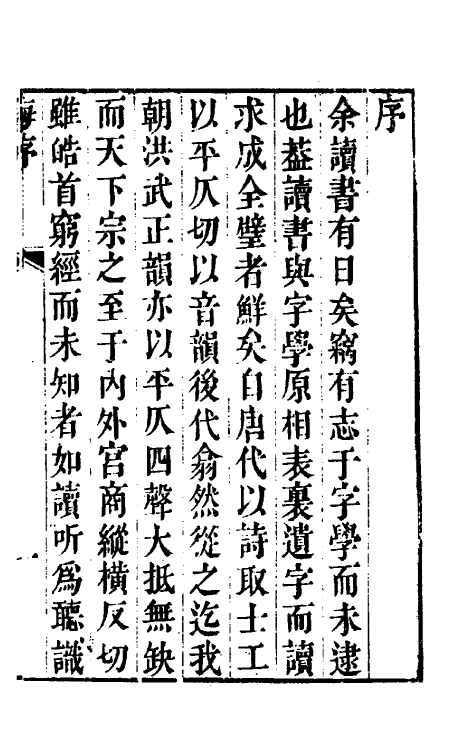 序
余讀書有日矣竊有志于字學而未逮
也葢讀書與字學原相表裏遺字而讀
求成全璧者鮮矣自唐代以詩取士工
以平仄切以音韻後代翕然從之迄我
朝洪武正韻亦以平仄四聲大抵無缺
而天下宗之至于內外宫商縱橫反切
雖皓首窮經而未知者如讀听爲聽識
序
一